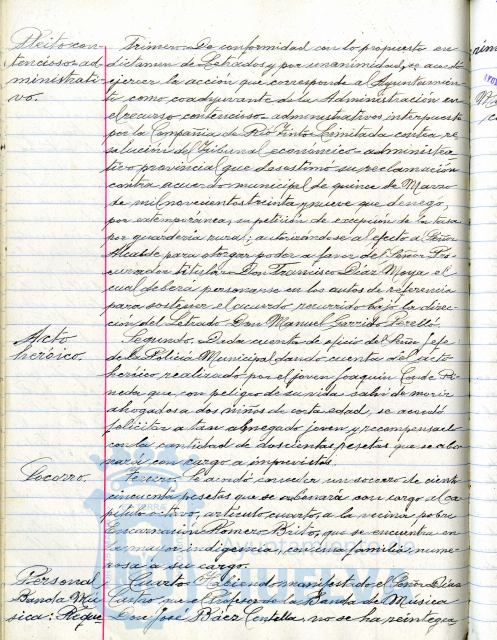 Pleito con-
tencioso-ad-
ministrati-
vo.
Primero. De conformidad con lo propuesto en
dictamen de Letrados y por unanimidad, se acordó
ejercer la acción que corresponde al Ayuntamien-
to como coadyuvante de la Administración en
el recurso contencioso-administrativo interpuesto
por la Compañia de Rio-Tinto Limitada contra re-
solución del Tribunal económico-administra-
tivo provincial que desestimó su reclamación
contra acuerdo municipal de quince de Marzo
de mil novecientos treinta y nueve que denegó,
por extemporánea, su petición de excepción de la tasa
por guarderia rural; autorizándose al efecto al Señor
Alcalde para otorgar poder a favor del Señor Pro-
curador titular Don Francisco Diaz Moya el
cual deberá personarse en los autos de referencia
para sostener el acuerdo recurrido bajo la direc-
ción del Letrado Don Manuel Garrido Perelló.
Acto
heróico.
Segundo. Dada cuenta de oficio del Señor Jefe
de la Policia Municipal dando cuenta del acto
heróico realizado por el joven Joaquin Conde Pi-
neda que con peligro de su vida salvó de morir
ahogados a dos niños de corta edad, se acordó
felicitar a tan abnegado joven y recompensarle
con la cantidad de doscientas pesetas que se abo-
nará con cargo a imprevistos.
Socorro.
Tercero. Se acordó conceder un socorro de ciento
cincuenta pesetas que se abonará con cargo al ca-
pitulo octavo, articulo cuarto, a la vecina pobre
Encarnación Romero Brito, que se encuentra en
la mayor indigencia, con una familia nume-
rosa a su cargo.
Personal
Banda Mú-
sica: Reque
Cuarto. Habiendo manifestado el Señor Dias
Castro que el Profesor de la Banda de Música
Don José Báez Centella, no se ha reintegra-